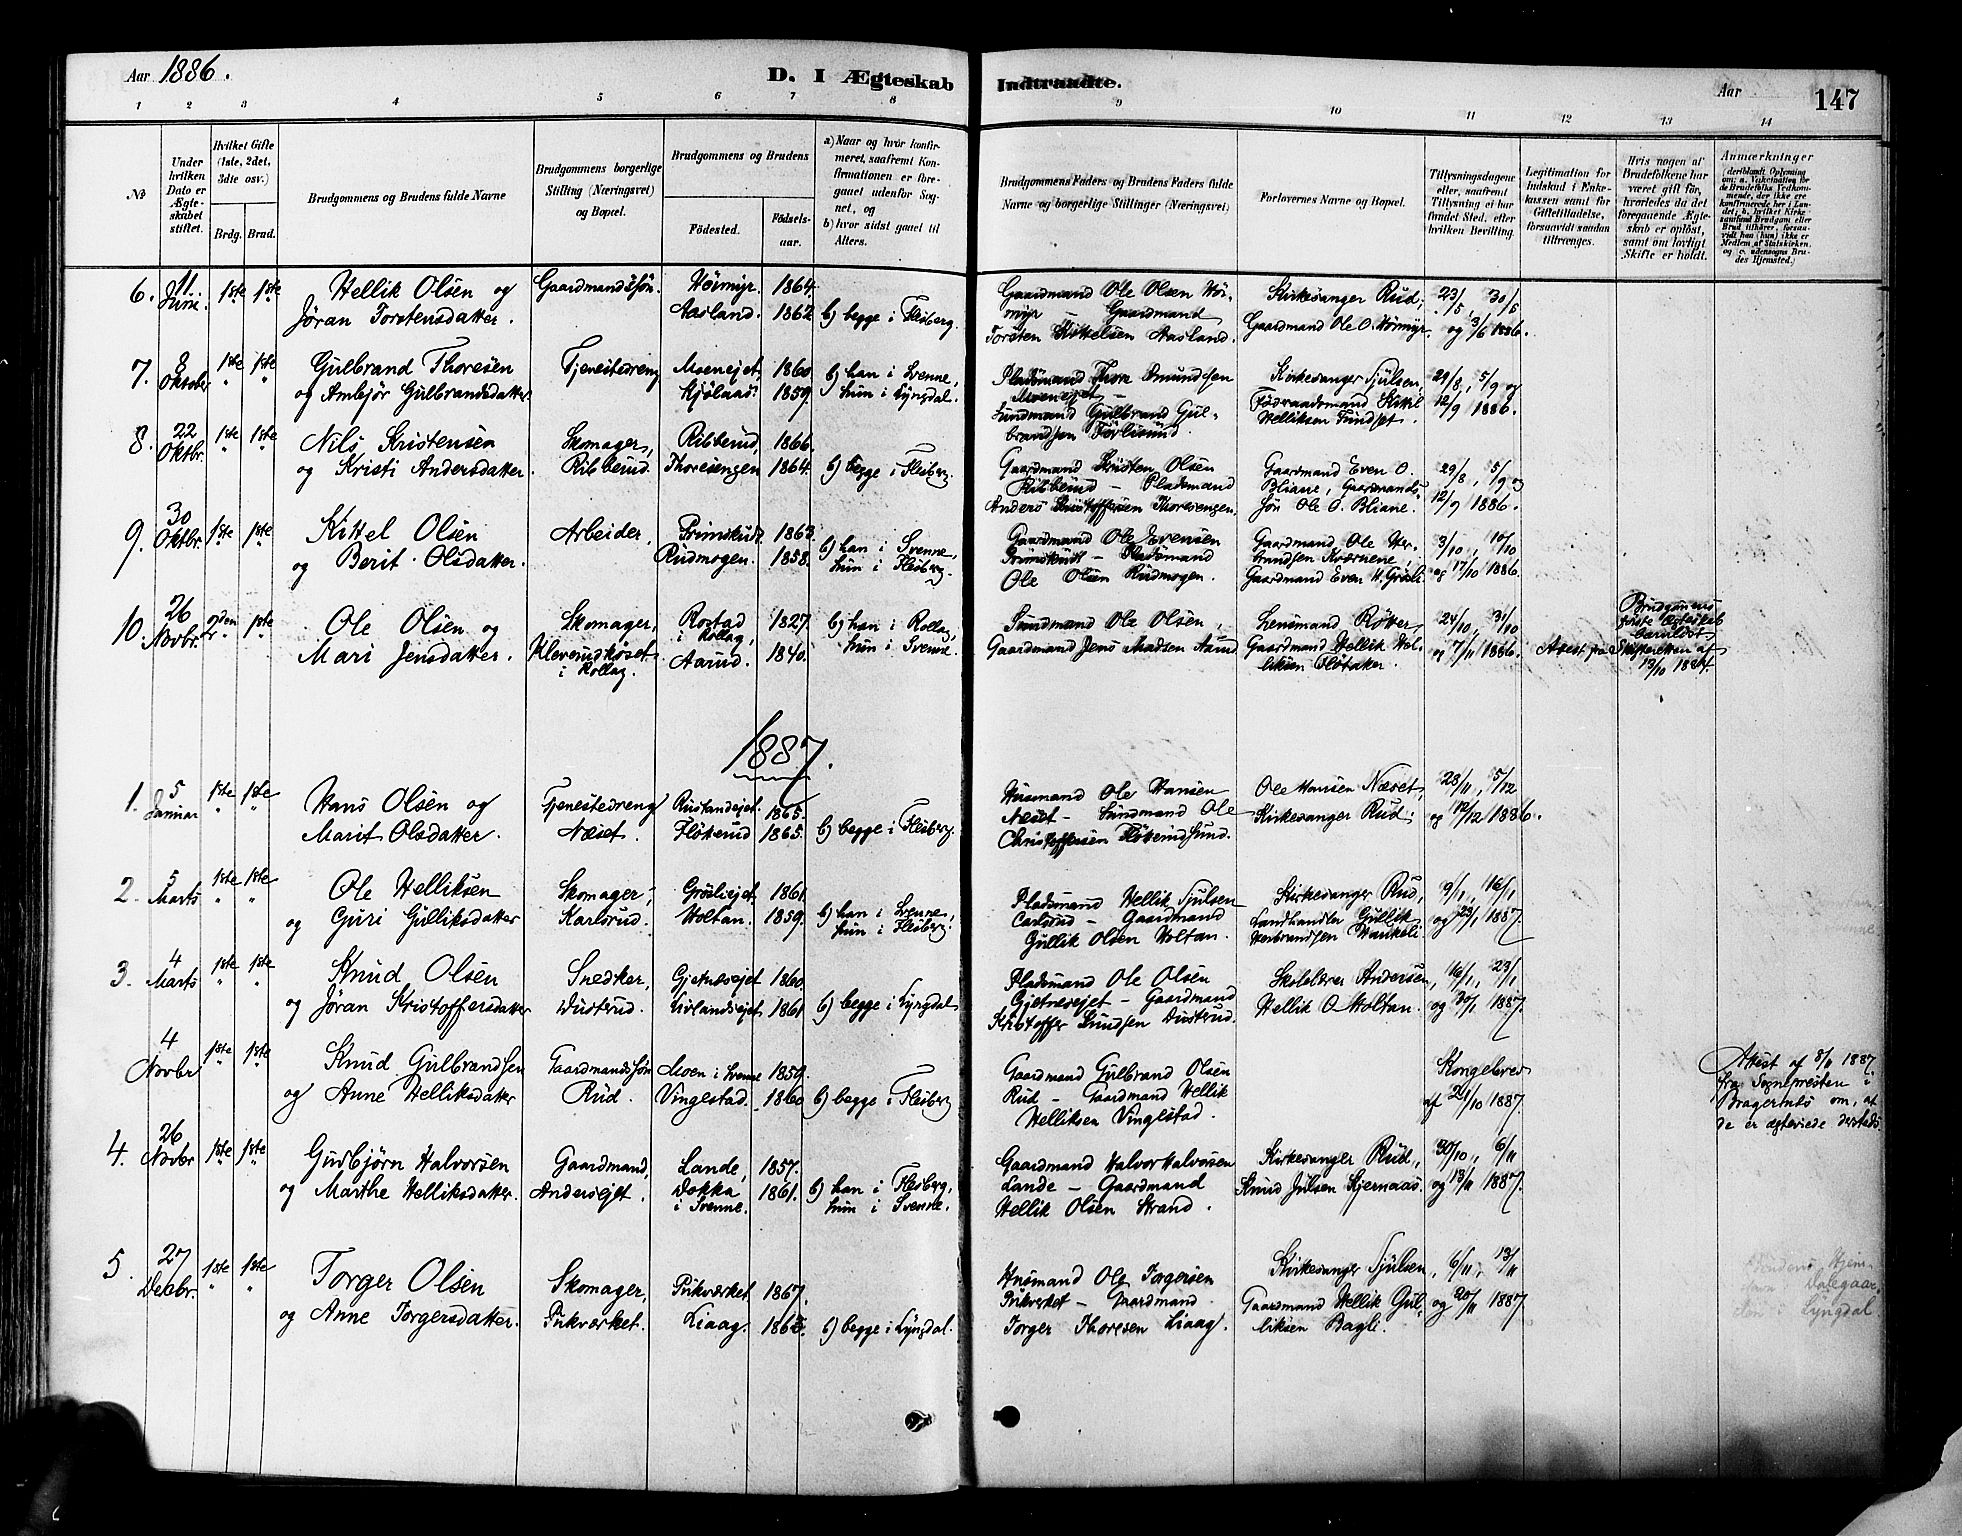 Aar 1886.
D. I Ægteskab Indtraadte.
Aar
147
1 2 3 4 5 6 7 8 9 10 11 12 13 14
№
Under hvilken Dato er Ægteskabet stiftet.
Hvilket Gifte (1ste, 2det, 3dte osv.)
Brdg. Brud.
Brudgommens og Brudens fulde Navne
Brudgommens borgerlige Stilling (Næringsvei) og Bopæl.
Brudgommens og Brudens
Fødested. Fødselsaar.
a) Naar og hvor konfirmeret, saafremt Konfirmationen er foregaaet udenfor Sognet, og
b) hvor sidst gaaet til Alters.
Brudgommens Faders og Brudens Faders fulde Navne og borgerlige Stillinger (Næringsvei)
Forlovernes Navne og Bopæl.
Tillysningsdagene eller, saafremt Tillysning ei har fundet Sted, efter hvilken Bevilling.
Legitimation for Indskud i Enkekassen samt for Giftetilladelse, forsaavidt saadan tiltrænges.
Hvis nogen af Brudefolkene har været gift før, hvorledes da det foregaaende Ægteskab er opløst, samt om lovligt Skifte er holdt.
Anmærkninger
6. 11 Juni. 1ste 1ste Hellik Olsen og Gaardmandssøn. Hörmyr. 1864.
Jøran Torstensdatter. Aasland. 1862 b) begge i Flesberg.
Gaardmand Ole Olsen Hör- Kirkesanger Rud, 23/5, 30/5
myr Gaardmand Gaardmand Ole O. Hörmyr. og 3/6 1886.
Torsten Kittelsen Aasland.
7. 8 Oktober 1ste 1ste Gulbrand Thoresen Tjenestedreng Moenejet, 1860. b) han i Svenne,
og Ambjør Gulbrandsdatter. Kjölaas. 1859. hun i Lyngdal.
Pladsmand Thore Amundsen Kirkesanger Tjulsen, 29/8, 5/9 og
Moenejet - Föderaadsmand Kittil 12/9 1886.
Sundmand Gulbrand Gul- Helliksen Tundset.
brandsen
8. 22 Oktbr. 1ste 1ste Nils Kristensen Skomager, Ribberud, 1866.
og Kristi Andersdatter. Ribberud. Thoresengen 1864. b) begge i Flesberg.
Gaardmand Kristen Olsen Gaardmand Even O. 29/8, 5/9 og
Ribberud - Pladsmand Bliane, Gaardmands- 12/9 1886.
Anders Kristoffersen Thoresengen. søn Ole O. Bliane.
9. 30 Oktbr. 1ste 1ste Kittel Olsen Arbeider, Grimskudt 1863. b) han i Svenne,
og Berit Olsdatter. Rudmogen. 1858. hun i Flesberg.
Gaardmand Ole Evensen Gaardmand Ole Her- 3/10, 10/10
Grimskudt - Pladsmand brandsen Kværnene, og 17/10 1886.
Ole Olsen Rudmogen. Gaardmand Even H. Grösli
10. 26 Novbr. 2den 1ste Ole Olsen og Skomager, Rostad i Rollag, 1827. b) han i Rollag,
Mari Jensdatter. Kleverudkåset i Rollag. Aarud. 1840. hun i Svenne.
Sundmand Ole Olsen, Lensmand Röter 24/10, 31/10
Gaardmand Jens Madsen Aarud Gaardmand Hellik Hel- og 7/11 1886. Attest fra Skifteretten af
liksen Flötaker. 13/10 1884.
Brudgommens
første Ægteskab
1887.
1. 5 Januar 1ste 1ste Hans Olsen og Tjenestedreng Rustandejet. 1865.
Marit Olsdatter. Næset. Flökerud 1865. b) begge i Flesberg.
Husmand Ole Hansen Ole Hansen Næset, 28/11, 5/12
Næset - Sundmand Ole Kirkesanger Rud. og 12/12 1886.
Christoffersen Flökerudsund.
2. 5 Marts 1ste 1ste Ole Helliksen Skomager, Grösliejet. 1861. b) han i Svenne,
og Guri Gulliksdatter Karlsrud. Holtan. 1859. hun i Flesberg.
Pladsmand Hellik Tjulsen Kirkesanger Rud, 9/1, 16/1
Carlsrud - Gaardmand Landhandler Gullik og 23/1 1887.
Gullik Olsen Holtan. Herbrandsen Haukeli.
3. 4 Marts 1ste 1ste Knud Olsen Snedker, Gjetnesejet 1860.
og Jøran Kristoffersdatter Dusterud. Livlandsejet 1861 b) begge i Lyngdal
Pladsmand Ole Olsen Skolelærer Andersen, 16/1, 23/1
Gjetnesejet - Gaardmand Hellik O. Holtan. og 30/1 1887.
Kristoffer Knudsen Dusterud.
4 Novbr 1ste 1ste Knud Gulbrandsen Gaardmandssøn Moen i Svenne 1859.
og Anne Helliksdatter Rud. Vinglestad. 1860 b) begge i Flesberg
Gaardmand Gulbrand Olsen Kongebrev
Rud - Gaardmand Hellik af 21/10 1887.
Helliksen Vinglestad.
Attest af 8/11 1887
fra Sognepresten i
Bragernes om, at
de er ægteviede dersteds.
4. 26 Novbr 1ste 1ste Gudbjørn Halvorsen Gaardmand, Lande, 1857. b) han i Flesberg,
og Marthe Helliksdatter. Andersejet. Dokka i Svenne. 1861. hun i Svenne.
Gaardmand Halvor Halvorsen Kirkesanger Rud, 30/10, 6/11
Lande - Gaardmand Knud Julsen Kjernaas. og 13/11 1887.
Hellik Olsen Strand.
5. 27 Decbr. 1ste 1ste Torger Olsen Skomager, Pukværket. 1867.
og Anne Torgersdatter. Pukværket. Liaag. 1865. b) begge i Lyngdal.
Husmand Ole Torgersen Kirkesanger Tjulsen, 6/11, 13/11
Pukverket - Gaardmand Gaardmand Hellik Gul- og 20/11 1887.
Torger Thoresen Liaag. liksen Bagli.
Brudens Hjem-
i Lyngdal